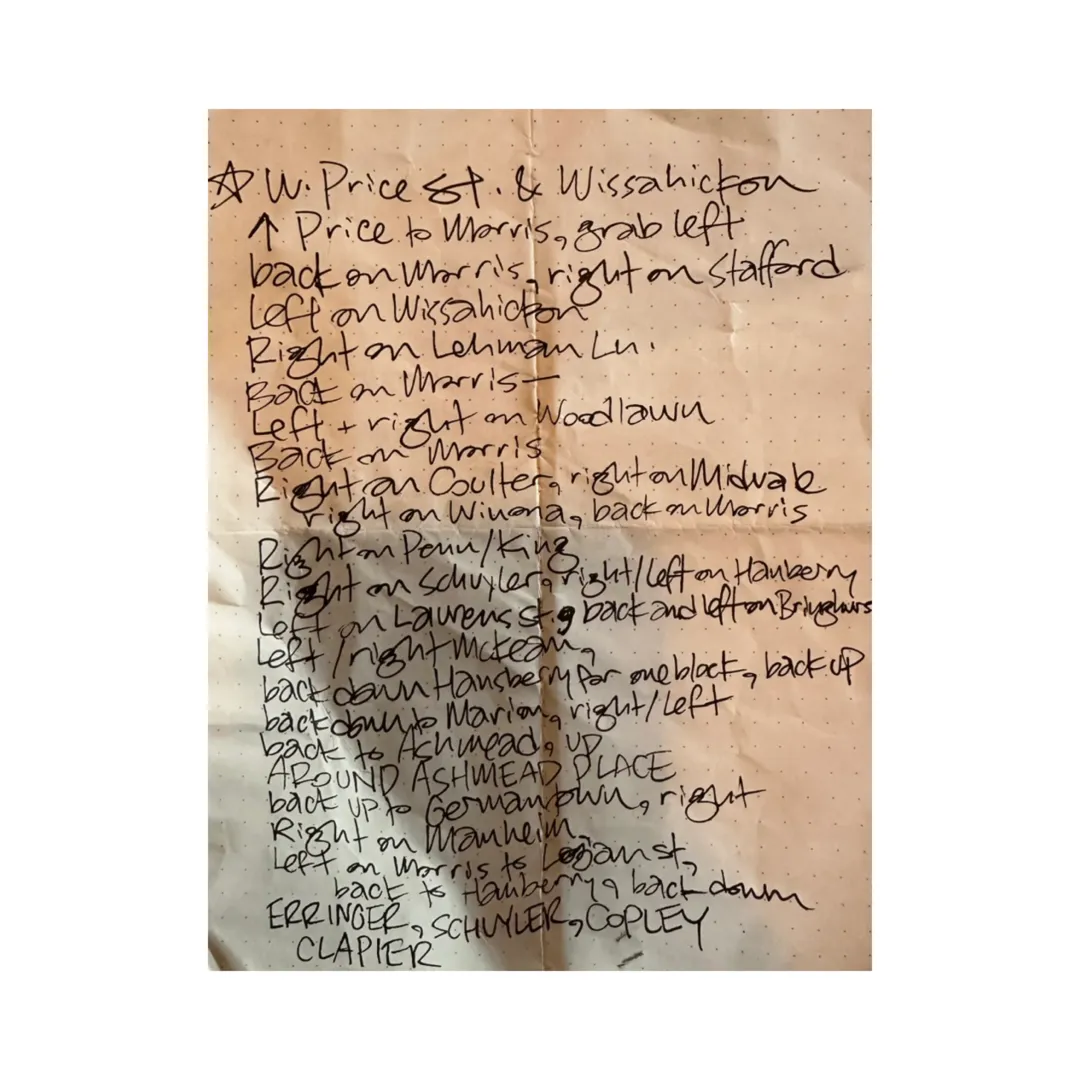 ☆ W. Price St. & Wissahickon
↑ Price to Morris, grab left
back on Morris, right on Stafford
Left on Wissahickon
Right on Lehman Ln.
Back on Morris—
Left + right on Woodlawn
Back on Morris
Right on Coulter, right on Midvale
right on Winona, back on Morris
Right on Penn/King
Right on Schuyler, right/left on Hanberry
Left on Laurens St., back and left on Bringhurs
Left/right McKean,
back down Hansberry for one block, back up
back down to Marion, right/left
back to Ashmead, up
AROUND ASHMEAD PLACE
back up to Germantown, right
Right on Manheim
Left on Morris to Logan st,
back to Hanberry, back down
ERRINGER, SCHUYLER, COPLEY
CLAPIER